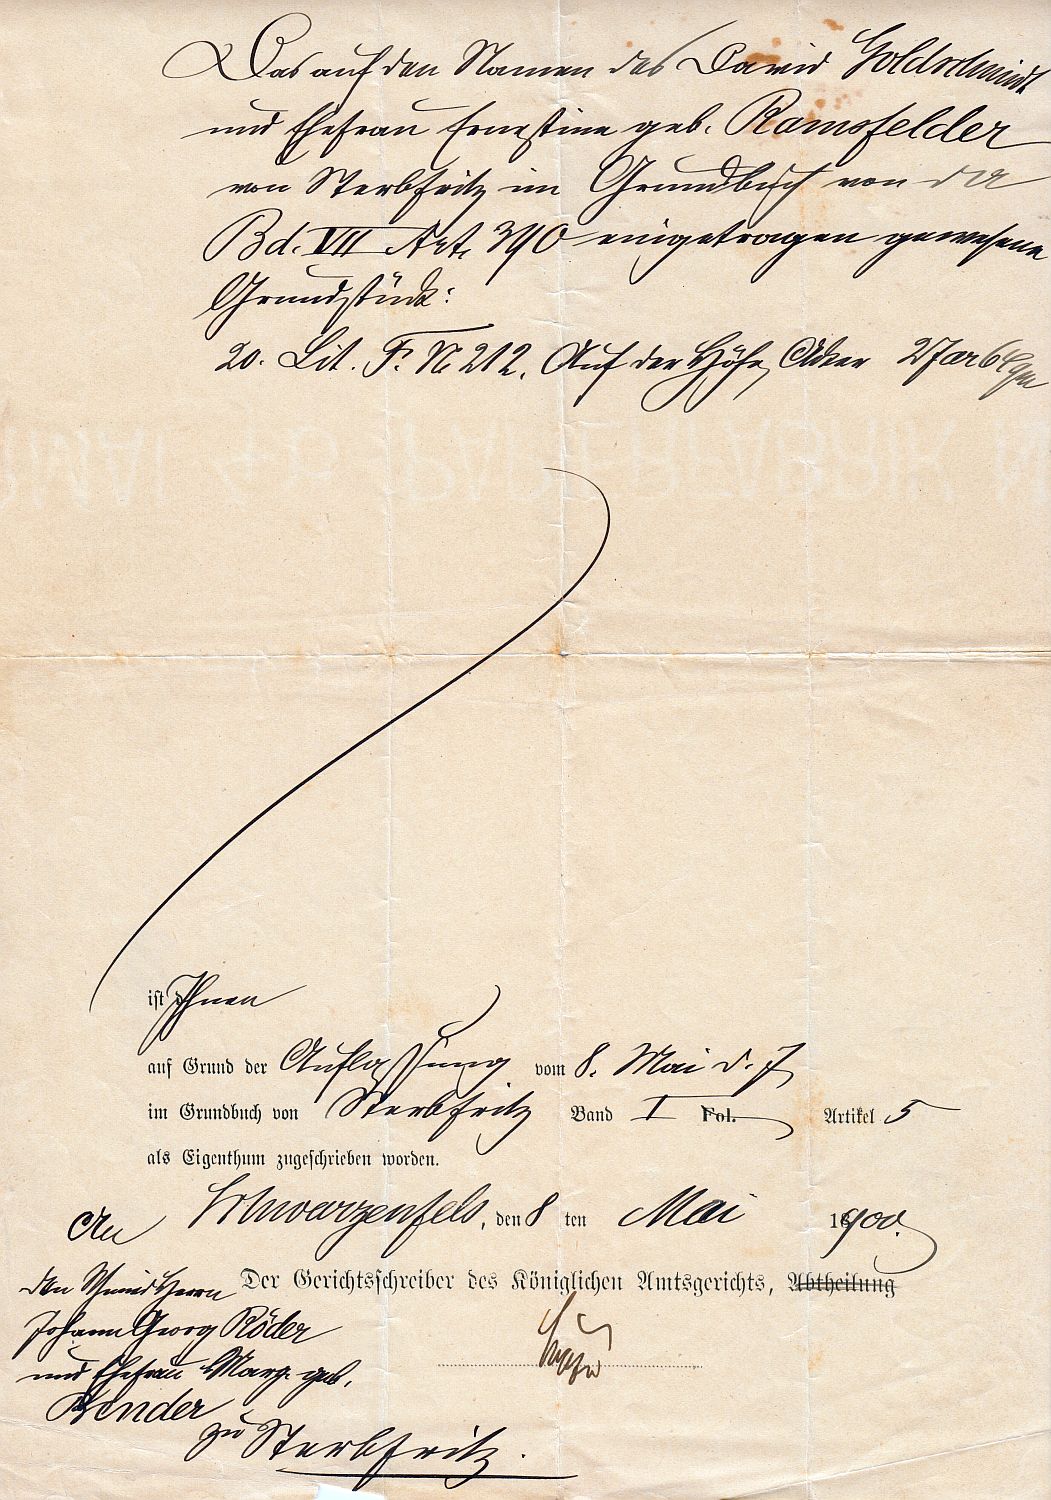 Das auf den Namen des David Goldschmidt
und Ehefrau Ernestine geb. Ramsfelder
von Sterbfritz im Grundbuch von da
Bd. VII Art. 390 eingetragen gewesene
Grundstück:
20. Lit. F. N 212. Auf der Höhe, Acker 27 ar 64 qm
ist Ihnen
auf Grund der Auflassung vom 8. Mai d. J.
im Grundbuch von Sterbfritz Band I Fol. Artikel 5
als Eigenthum zugeschrieben worden.
Schwarzenfels, den 8 ten Mai 1900.
Der Gerichtsschreiber des Königlichen Amtsgerichts, Abtheilung
An
den Schmied Herrn
Johann Georg Röder
und Ehefrau Marg. geb.
Bender
zu Sterbfritz.